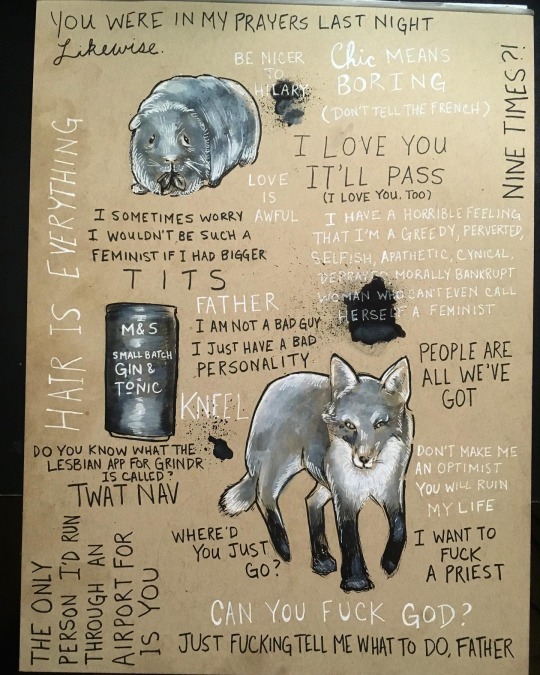 YOU WERE IN MY PRAYERS LAST NIGHT
Likewise.
BE NICER
TO
HILARY
Chic MEANS
BORING
(DON'T TELL THE FRENCH)
NINE TIMES?!
I LOVE YOU
IT'LL PASS
(I LOVE YOU, TOO)
LOVE
IS
AWFUL
HAIR IS EVERYTHING
I SOMETIMES WORRY
I WOULDN'T BE SUCH A
FEMINIST IF I HAD BIGGER
TITS
I HAVE A HORRIBLE FEELING
THAT I'M A GREEDY, PERVERTED,
SELFISH, APATHETIC, CYNICAL,
DEPRAVED, MORALLY BANKRUPT
WOMAN WHO CAN'T EVEN CALL
HERSELF A FEMINIST
M&S
SMALL BATCH
GIN &
TONIC
FATHER
I AM NOT A BAD GUY
I JUST HAVE A BAD
PERSONALITY
KNEEL
PEOPLE ARE
ALL WE'VE
GOT
DO YOU KNOW WHAT THE
LESBIAN APP FOR GRINDR
IS CALLED?
TWAT NAV
DON'T MAKE ME
AN OPTIMIST
YOU WILL RUIN
MY LIFE
WHERE'D
YOU JUST
GO?
I WANT TO
FUCK
A PRIEST
THE ONLY
PERSON I'D RUN
THROUGH AN
AIRPORT FOR
IS YOU
CAN YOU FUCK GOD?
JUST FUCKING TELL ME WHAT TO DO, FATHER